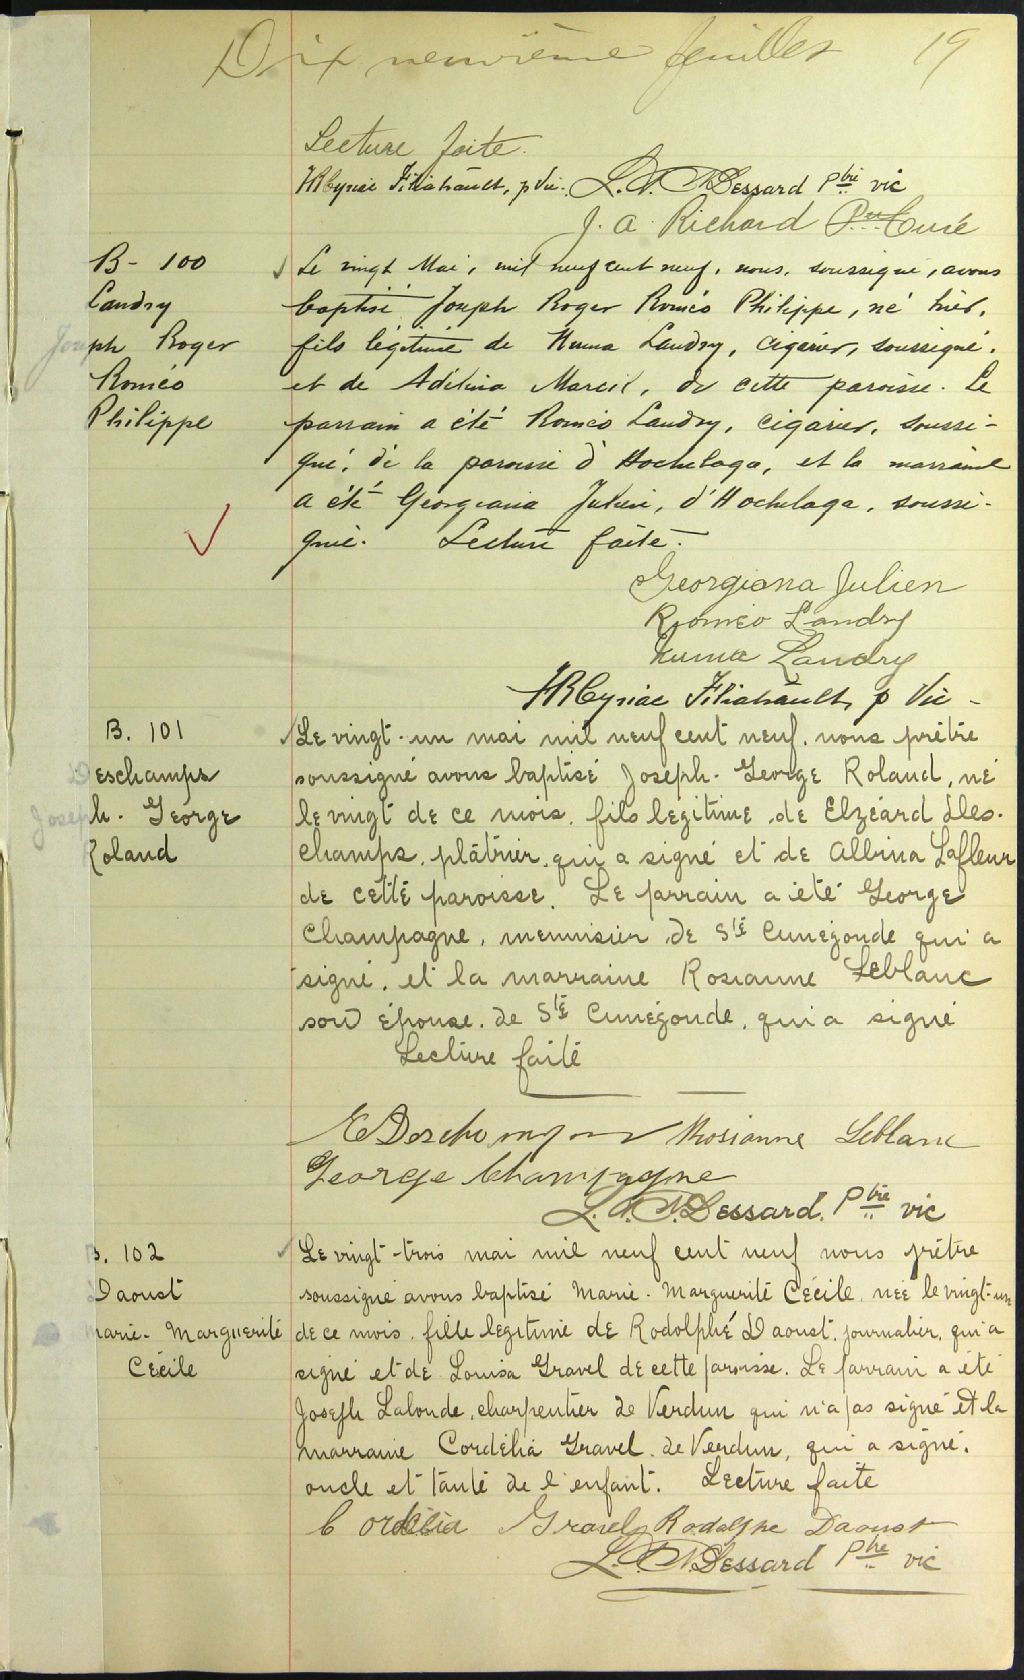 Dix neuvième feuillet 19
Lecture faite.
HRCyriac Filiatrault, p Vic. L. N. Dessard Ptre vic
J. A. Richard Ptre Curé
B - 100
Landry
Joseph Roger
Roméo
Philippe
Le vingt Mai, mil neuf cent neuf, nous, soussigné, avons
baptisé Joseph Roger Roméo Philippe, né hier,
fils légitime de Numa Landry, cigarier, soussigné,
et de Adélina Marcil, de cette paroisse. Le
parrain a été Roméo Landry, cigarier, soussi-
gné, de la paroisse d'Hochelaga, et la marraine
a été Georgiana Julien, d'Hochelaga, soussi-
gnée. Lecture faite.
Georgiana Julien
Roméo Landry
Numa Landry
HRCyriac Filiatrault, p Vic -
B. 101
Deschamps
Joseph - George
Roland
Le vingt-un mai mil neuf cent neuf, nous prêtre
soussigné avons baptisé Joseph-George Roland, né
le vingt de ce mois, fils légitime de Elzéard Des-
champs, plâtrier, qui a signé et de Albina Lafleur
de cette paroisse. Le parrain a été George
Champagne, menuisier de Ste Cunégonde qui a
signé, et la marraine Rosianne Leblanc
son épouse, de Ste Cunégonde, qui a signé
Lecture faite
E Deschamps Rosianne Leblanc
George Champagne
L. N. Dessard, Ptre vic
B. 102
Daoust
Marie - Marguerite
Cécile
Le vingt-trois mai mil neuf cent neuf nous prêtre
soussigné avons baptisé Marie-Marguerite Cécile, née le vingt-un
de ce mois, fille légitime de Rodolphe Daoust, journalier, qui a
signé et de Louisa Gravel de cette paroisse. Le parrain a été
Joseph Lalonde, charpentier de Verdun qui n'a pas signé et la
marraine Cordélia Gravel de Verdun, qui a signé,
oncle et tante de l'enfant. Lecture faite
Cordélia Gravel Rodolphe Daoust
L. N. Dessard Ptre vic